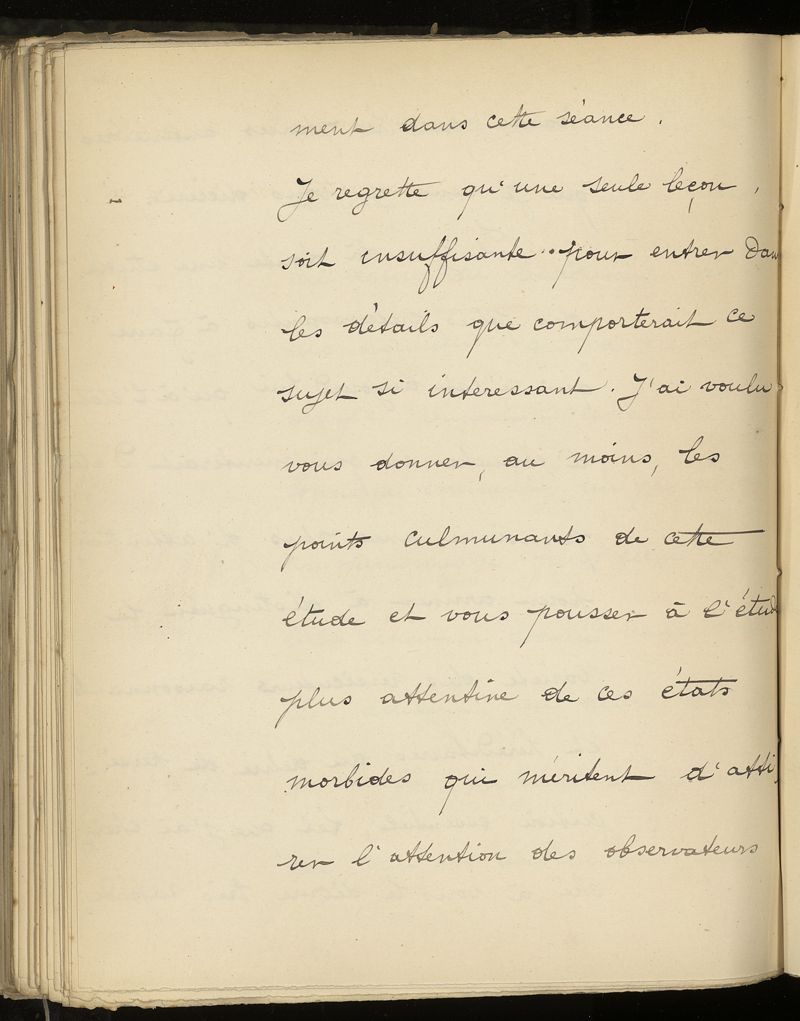 ment dans cette séance.
Je regrette qu'une seule leçon,
soit insuffisante pour entrer dans
les détails que comporterait ce
sujet si interessant. J'ai voulu
vous donner, au moins, les
points culmunants de cette
étude et vous pousser à l'étude
plus attentive de ces états
morbides qui méritent d'atti
rer l'attention des observateurs